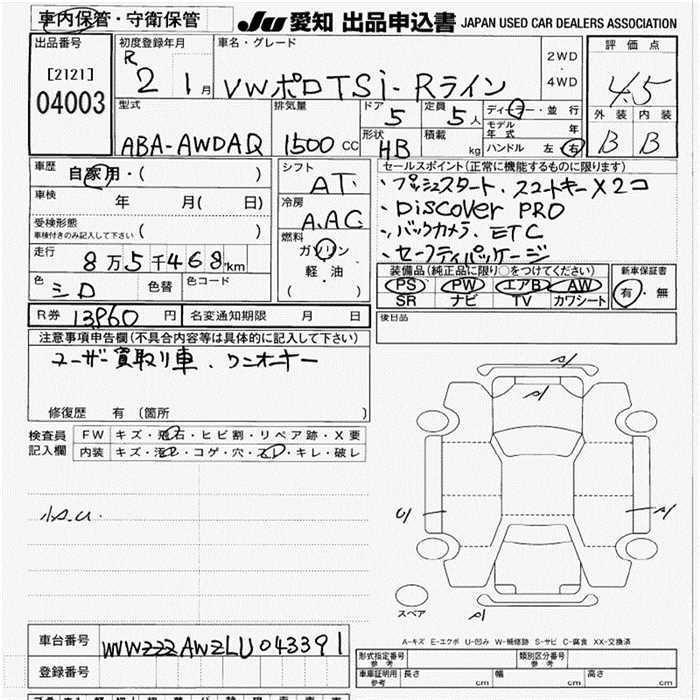 車内保管・守衛保管
JU 愛知 出品申込書 JAPAN USED CAR DEALERS ASSOCIATION
出品番号
[2121]
04003
初度登録年月
R 2 1月
車名・グレード
VWポロTSi-Rライン
2WD
・
4WD
評価点
4.5
外装 内装
B B
型式
ABA-AWDAQ
排気量
1500 CC
ドア
5
定員
5人
形状
HB
積載
kg
ディーラー・並行
モデル年式 年
ハンドル 左 右
車歴
自家用・( )
車検
年 月( 日)
受検形態
車検付きのみ記入して下さい ( )
走行
8万5千468km
色
シロ
色替
色コード
シフト
AT
冷房
AAC
燃料
ガソリン
軽・油
( )
セールスポイント(正常に機能するものに限ります)
・プッシュスタート、スマートキーX2コ
・DISCOVER PRO
・バックカメラ、ETC
・セーフティパッケージ
装備品(純正品に限り○をつけてください)
PS PW エアB AW
SR ナビ TV カワシート
新車保証書
有・無
R券 13960円
名変通知期限 月 日
後日品
注意事項申告欄(不具合内容等は具体的に記入して下さい)
ユーザー買取り車、ワンオーナー
修復歴 有 (箇所 )
検査員
記入欄
FW キズ・飛石・ヒビ割・リペア跡・X要
内装 キズ・コゲ・穴・キレ・破レ
スペア
A-キズ E-エクボ U-凹み W-補修跡 S-サビ C-腐食 XX-交換済
車台番号
WVWZZZAWZLU043391
登録番号
形式指定番号
参考
類別区分番号
参考
車庫証明用
参考
長さ cm 幅 cm 高さ cm